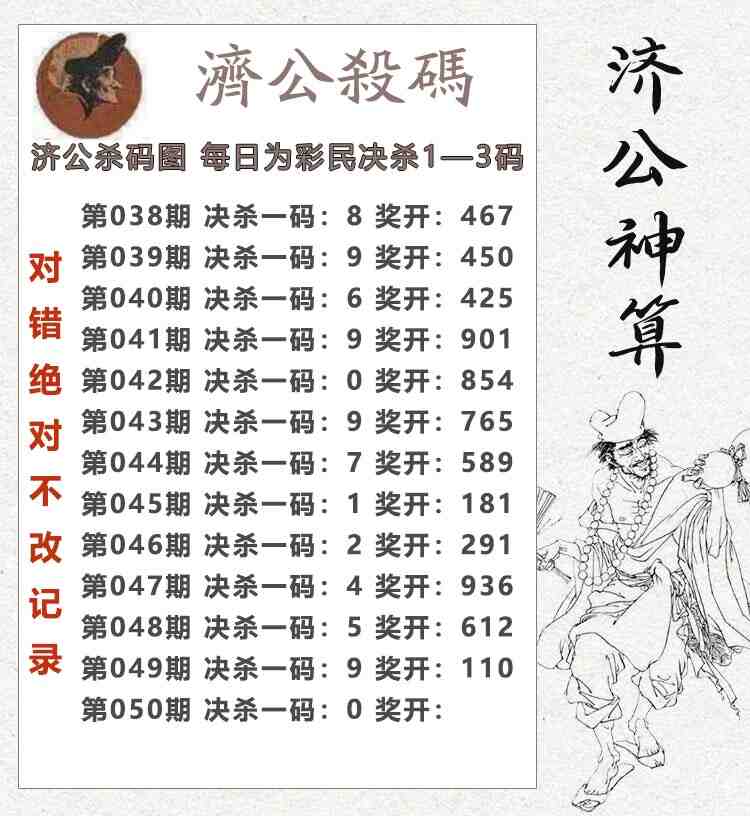 濟公殺碼
济公杀码图 每日为彩民决杀1—3码
第038期 决杀一码：8 奖开：467
第039期 决杀一码：9 奖开：450
第040期 决杀一码：6 奖开：425
第041期 决杀一码：9 奖开：901
第042期 决杀一码：0 奖开：854
第043期 决杀一码：9 奖开：765
第044期 决杀一码：7 奖开：589
第045期 决杀一码：1 奖开：181
第046期 决杀一码：2 奖开：291
第047期 决杀一码：4 奖开：936
第048期 决杀一码：5 奖开：612
第049期 决杀一码：9 奖开：110
第050期 决杀一码：0 奖开：
对错绝对不改记录
济公神算